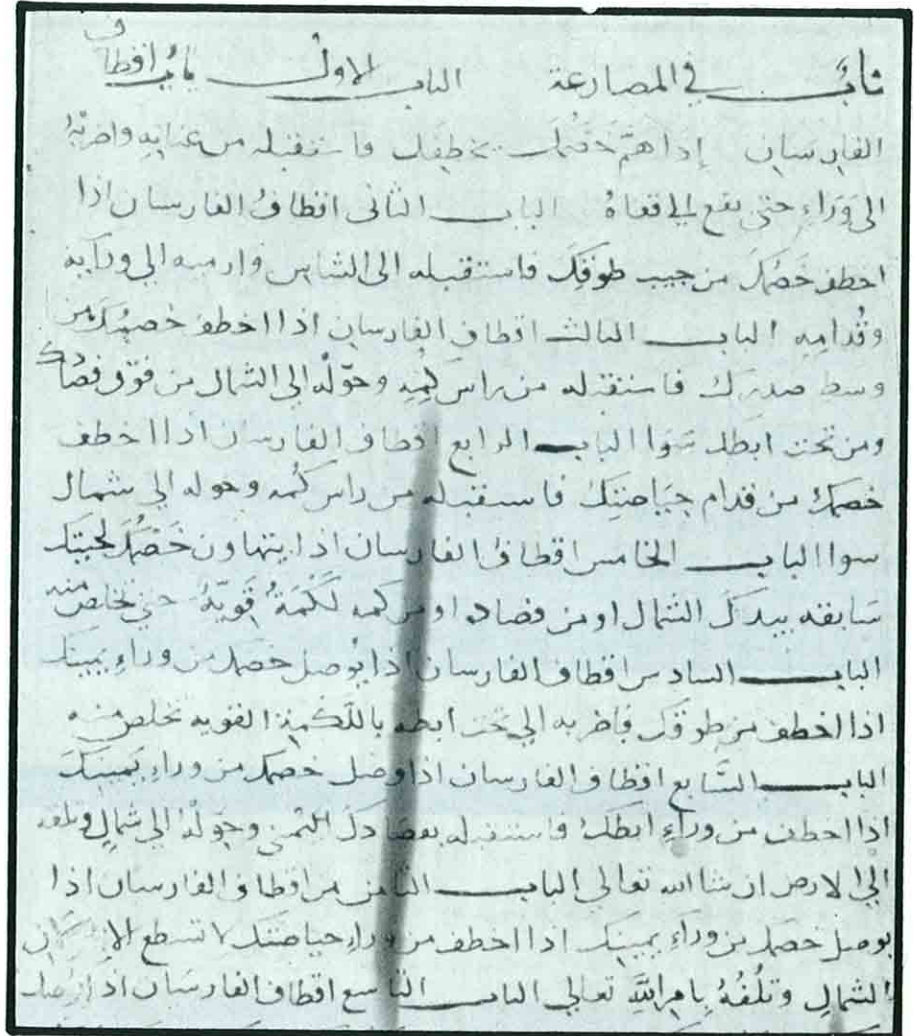 باب في المصارعة الباب الاول باب اقطاف
الفارسان إذا هَمَّ خَصْمُكَ يخطفك فاستقبله من عنانه واضربهُ
الى وَرَاءِ حتى يقع الى قفاهُ الباب الثانى اقطافُ الفارسان اذا
اخطف خَصْمُكَ من جيب طوقِكَ فاستقبله الى الشمايل وارميه الى ورايه
وقُدامِهِ الباب الثالث اقطاف الفارسان اذا اخطف خصمُكَ من
وسط صدرك فاستقبله من راس كُمِّهِ وحوّلْهُ الى الشمال من فوق فصادك
ومن تحت ابطك سَوا الباب الرابع اقطاف الفارسان اذا اخطف
خصمك من قدام حِيَاصَتِكَ فاستقبله من راس كُمه وحوله الى شمال
سوا الباب الخامس اقطافُ الفارسان اذا يتهاون خَصْمُكَ لحيتك
سَابقه بيدكَ الشمال او من فصاده او من كمه لَكْمَةً قَوِيّةً حتى تخلص منه
الباب السادس اقطاف الفارسان اذا يُوصل خصمك من وراءِ يمينك
اذا اخطف من طوقك فاضربه الى تحت ابطه باللّكمة القويه تخلص منه
الباب السَّابع اقطاف الفارسان اذا وصل خصمك من وراءِ يَمينِكَ
اذا اخطف من وراءِ ابطكَ فاستقبله بفصادكَ اليُمنى وحوّلْهُ الى شمالٍ وتلقه
الى الارض ان شا الله تعالى الباب الثامن من اقطاف الفارسان اذا
يوصل خصمك من وراءِ يمينك اذا اخطف من وراءِ حياصَتك لا تسطع الا
الشمالِ وتلُفُهُ بِامرِ اللَّهِ تعالى الباب التاسع اقطاف الفارسان اذا